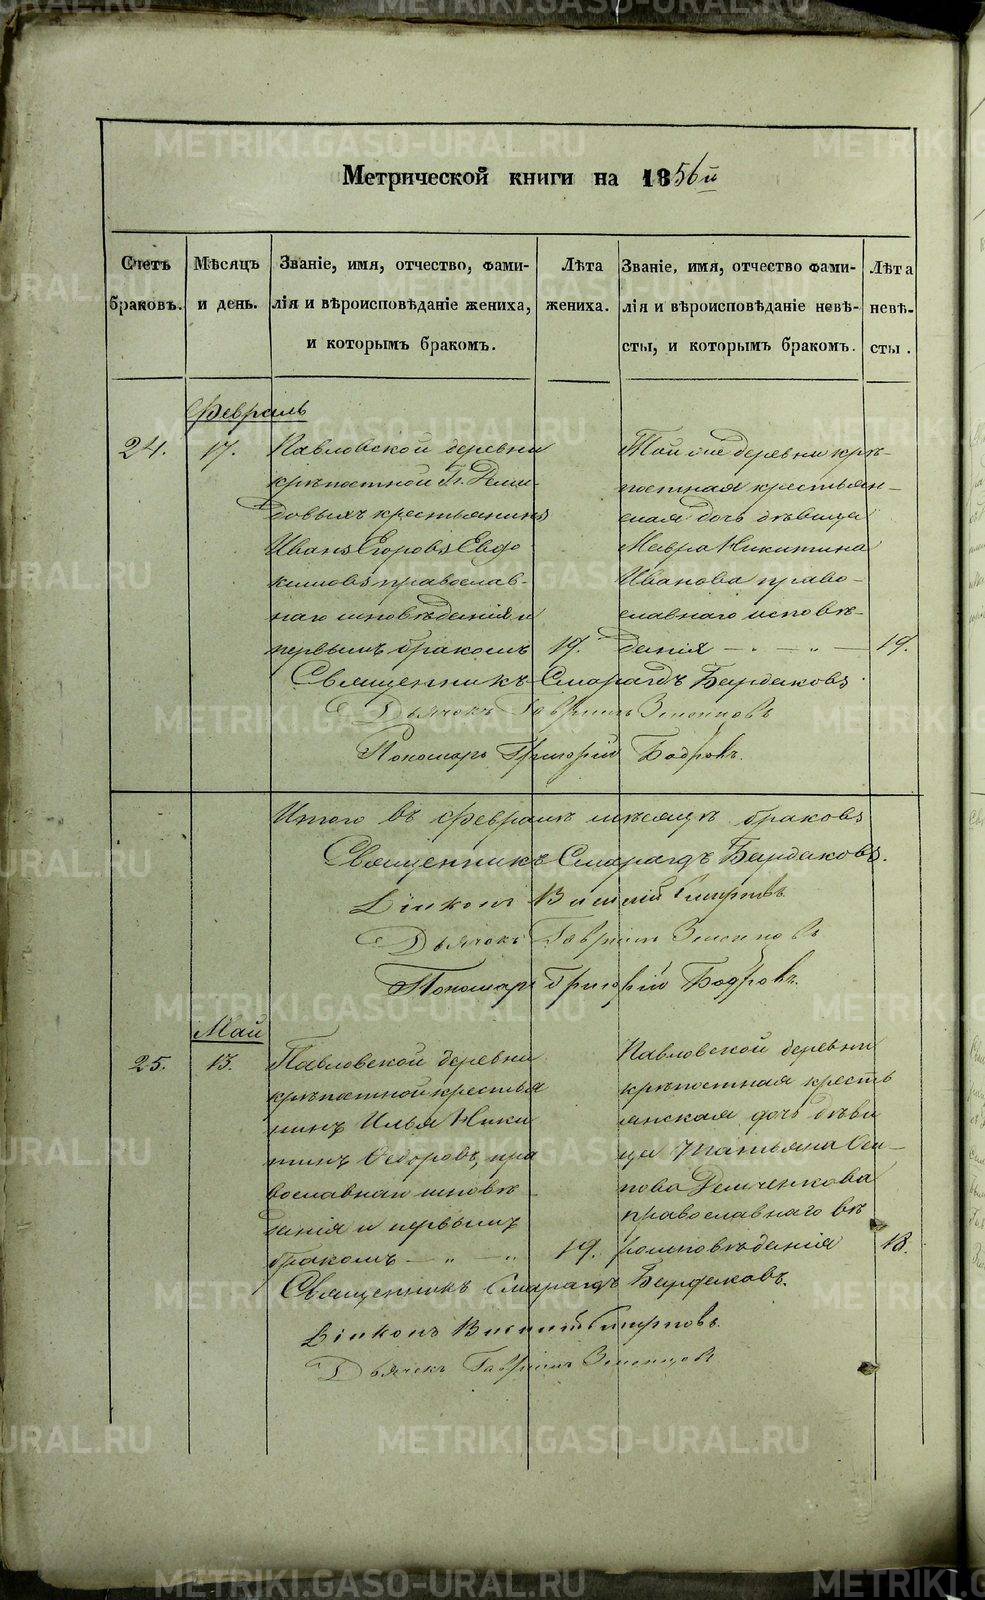 Метрической книги на 1856й
Счетъ браковъ.
Мѣсяцъ и день.
Званіе, имя, отчество, фами-
лія и вѣроисповѣданіе жениха,
и которымъ бракомъ.
Лѣта жениха.
Званіе, имя, отчество фами-
лія и вѣроисповѣданіе невѣ-
сты, и которымъ бракомъ.
Лѣта невѣ-
сты.
Февраль
24.
17.
Павловской деревни
крѣпостной Гг. Деми-
довыхъ крестьянинъ
Иванъ Егоровъ Евдо
кимовъ православ-
наго исповѣданія и
первымъ бракомъ
19.
Той же деревни крѣ-
постная крестьян-
ская дочь дѣвица
Мавра Никитина
Иванова право-
славнаго исповѣ-
данія
19.
Священникъ Смарагдъ Бардаковъ
Дьячокъ Гавріилъ
Пономарь Григорій Бодровъ.
Итого въ февралѣ мѣсяцѣ браковъ
Священникъ Смарагдъ Бардаковъ.
Діаконъ Василій Смирновъ
Дьячокъ Гавріилъ
Пономарь Григорій Бодровъ.
Май
25.
13.
Павловской деревни
крѣпостной крестья
нинъ Илья Ники
тинъ Ѳедоровъ, пра
вославнаго исповѣ
данія и первымъ
бракомъ
19.
Павловской деревни
крѣпостная кресть
янская дочь дѣви
ца Татьяна Оси-
пова Демченкова
православнаго вѣ
роисповѣданія
18.
Священникъ Смарагдъ Бардаковъ.
Діаконъ Василій Смирновъ.
Дьячекъ Гавріилъ
METRIKI.GASO-URAL.RU